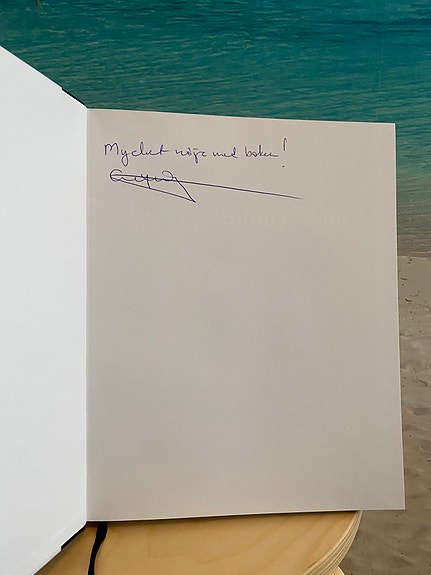 Mycket nöje med boken!